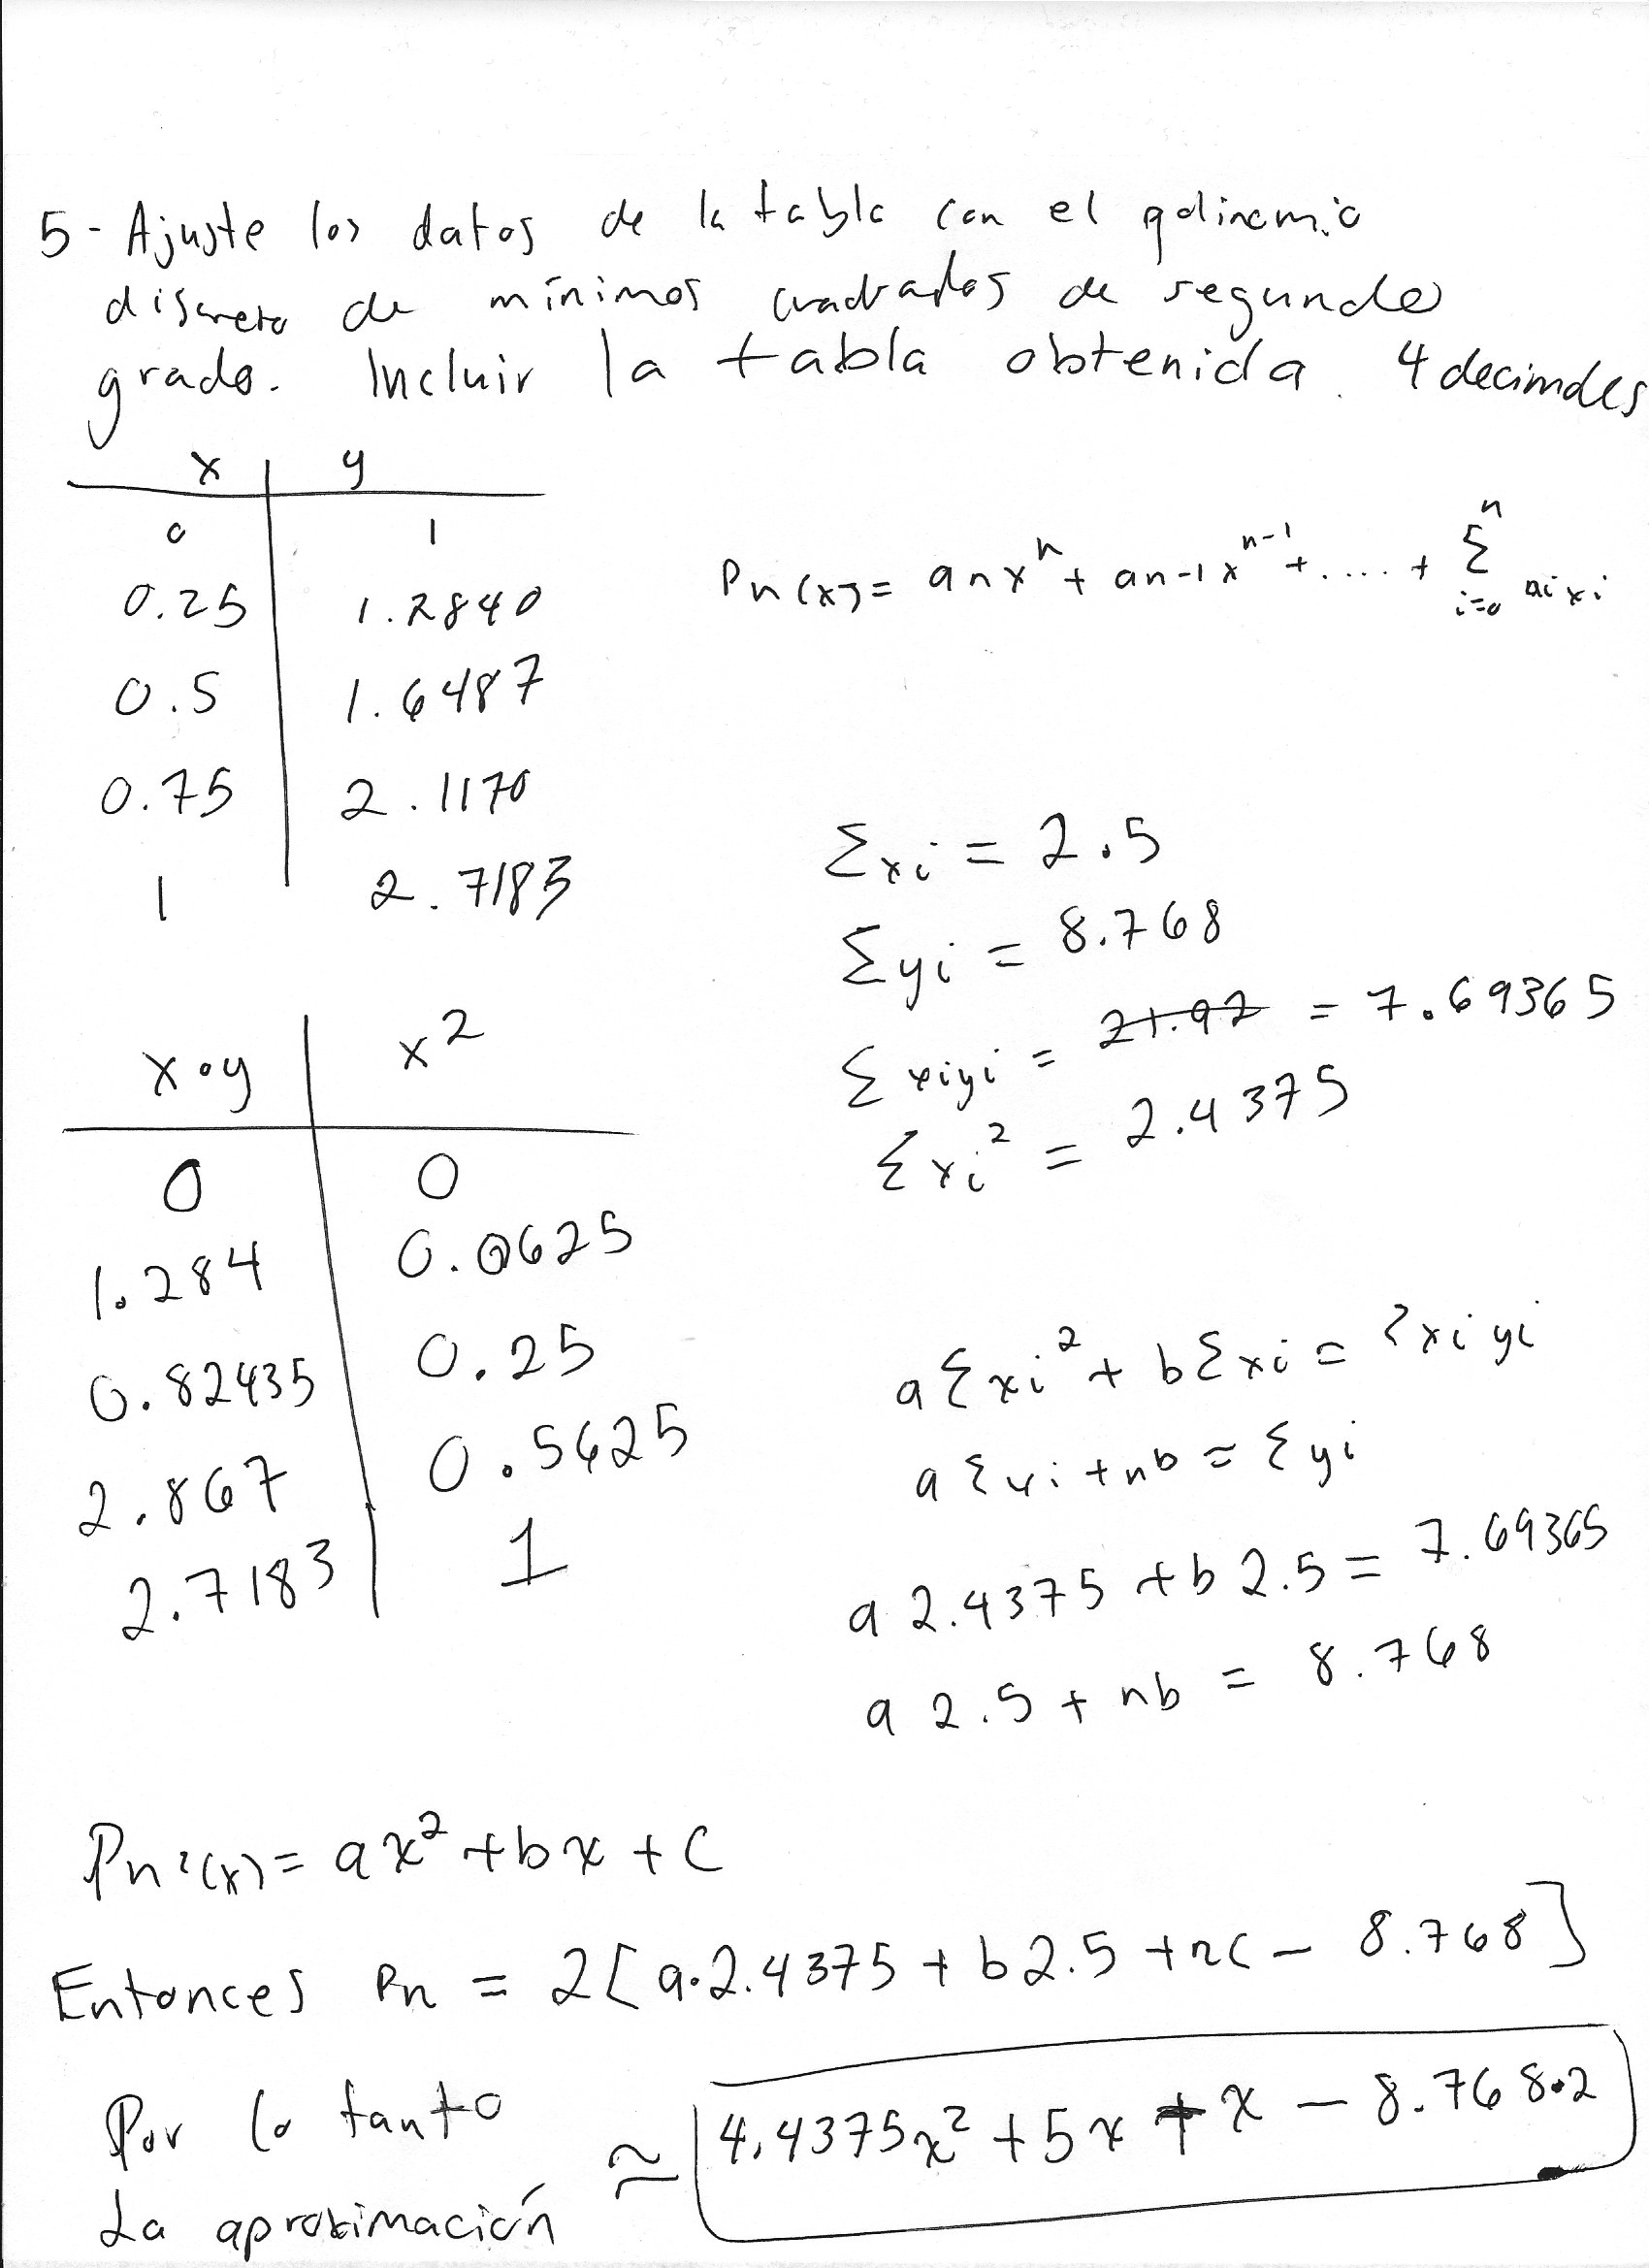 5- Ajuste los datos de la tabla con el polinomio
discreto de mínimos cuadrados de segundo
grado. Incluir la tabla obtenida. 4 decimales
x y
0 1
0.25 1.2840
0.5 1.6487
0.75 2.1170
1 2.7183
Pn(x) = anx^n + an-1x^n-1 + .... + Σ^n i=0 aixi
Σxi = 2.5
Σyi = 8.768
Σxiyi = 21.92 = 7.69365
Σxi² = 2.4375
x·y x²
0 0
1.284 0.0625
0.82435 0.25
2.867 0.5625
2.7183 1
aΣxi² + bΣxi = Σxiyi
aΣxi + nb = Σyi
a 2.4375 + b 2.5 = 7.69365
a 2.5 + nb = 8.768
Pn²(x) = ax² + bx + c
Entonces Pn = 2[a·2.4375 + b2.5 + nc - 8.768]
Por lo tanto
La aproximación ≃ 4.4375x² + 5x + x - 8.768·2